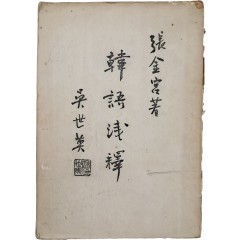 張金宮著
韓語浅釋
吳世英